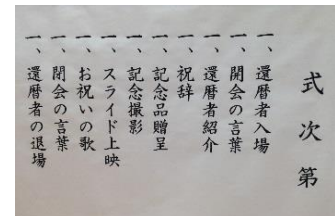 式次第
一、還暦者入場
一、開会の言葉
一、還暦者紹介
一、祝辞
一、記念品贈呈
一、記念撮影
一、スライド上映
一、お祝いの歌
一、閉会の言葉
一、還暦者の退場